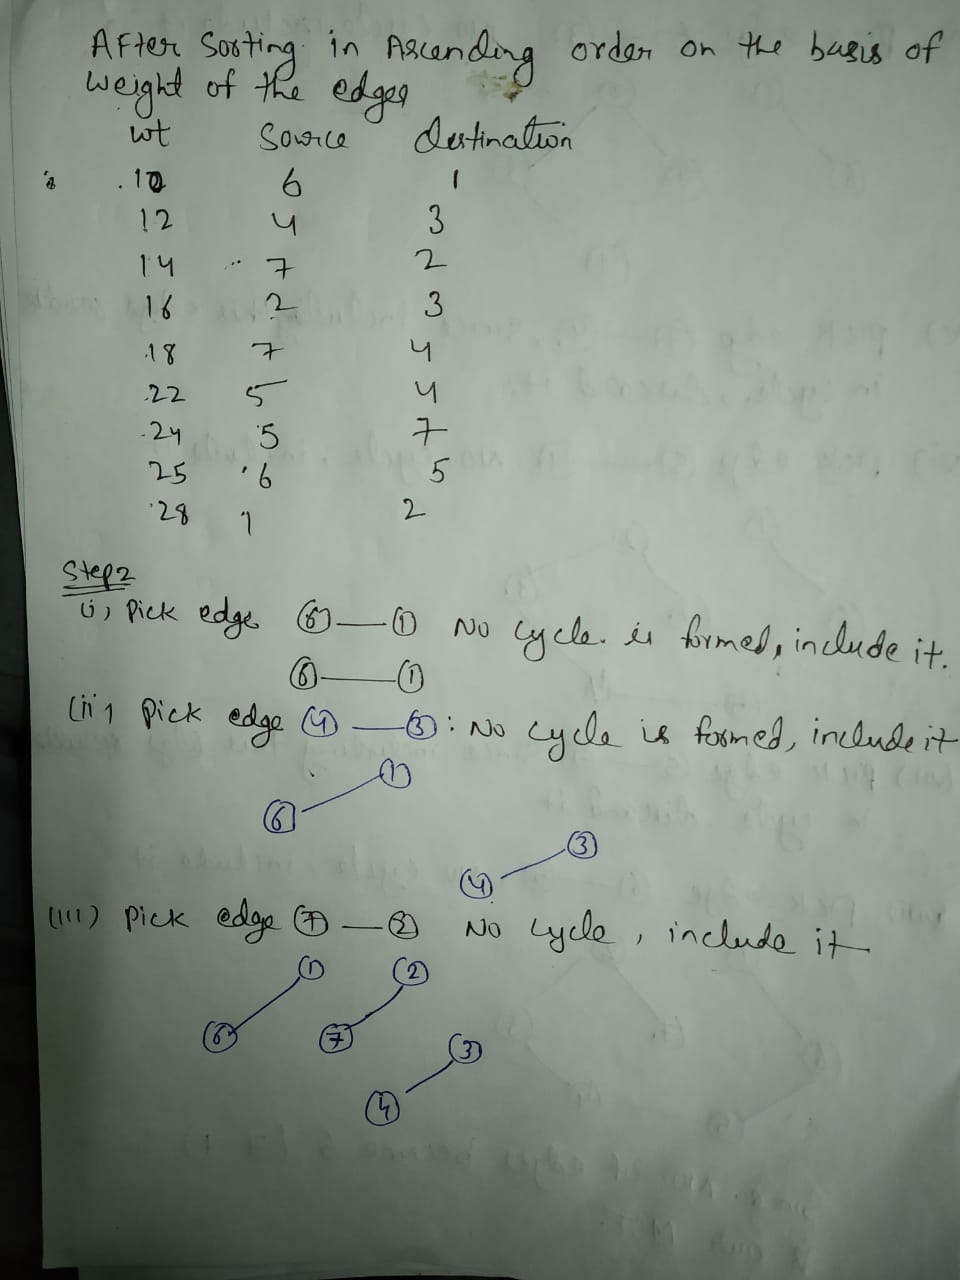 After Sorting in Ascending order on the basis of
weight of the edges
wt Source destination
10 6 1
12 4 3
14 7 2
16 2 3
18 7 4
22 5 4
24 5 7
25 6 5
28 1 2
Step2
(i) Pick edge 6 — 1 No cycle is formed, include it.
6 — 1
(ii) Pick edge 4 — 3 : No cycle is formed, include it
1
6
3
4
(iii) Pick edge 7 — 2 No cycle, include it
1 2
6 7
3
4